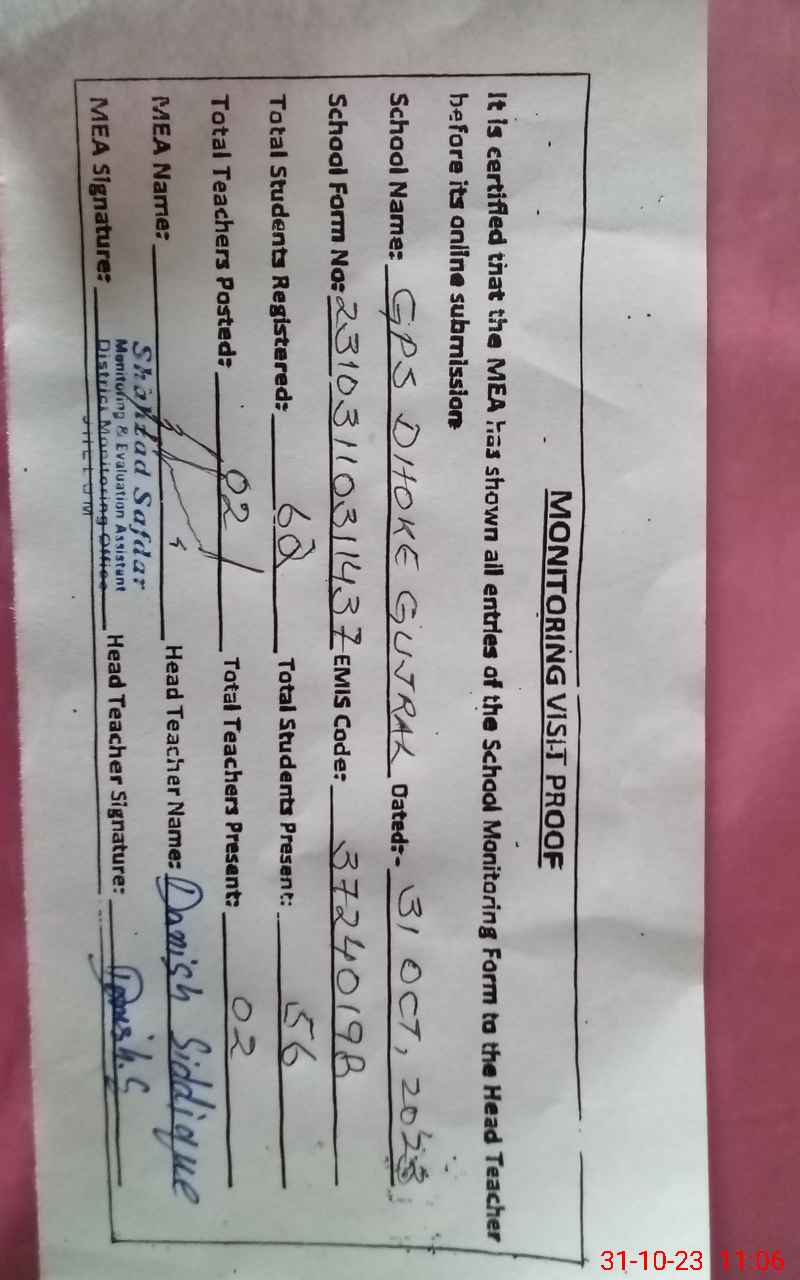 MONITORING VISIT PROOF
It is certified that the MEA has shown all entries of the School Monitoring Form to the Head Teacher
before its online submission
School Name: GPS DHOKE GUJRAL Dated:- 31 OCT, 2023
School Form No: 23103110311437 EMIS Code: 37240198
Total Students Registered: 62 Total Students Present: 56
Total Teachers Posted: 02 Total Teachers Present: 02
MEA Name: Head Teacher Name: Danish Siddique
Shahzad Safdar
Monitoring & Evaluation Assistant
District Monitoring Office
JHELUM
MEA Signature: Head Teacher Signature: Danish.S
31-10-23 11:06